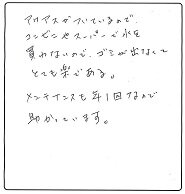 アクアスがついているので、
コンビニやスーパーで水を
買わないので、ゴミが出なくて
とても楽である。
メンテナンスも年1回なので
助かっています。